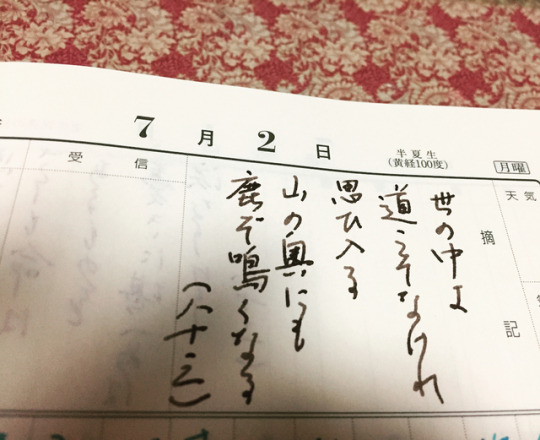 7月2日
半夏生
(黄経100度)
月曜
天気
摘記
受信
世の中よ
道こそなけれ
思ひ入る
山の奥にも
鹿ぞ鳴くなる
(八十三)